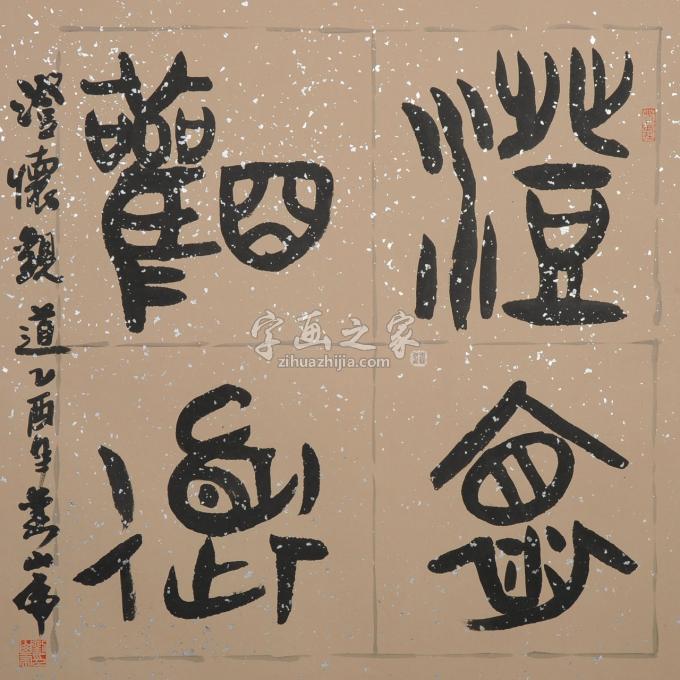 澄懷
觀道
澄懷觀道乙酉年
字画之家
zihuazhijia.com